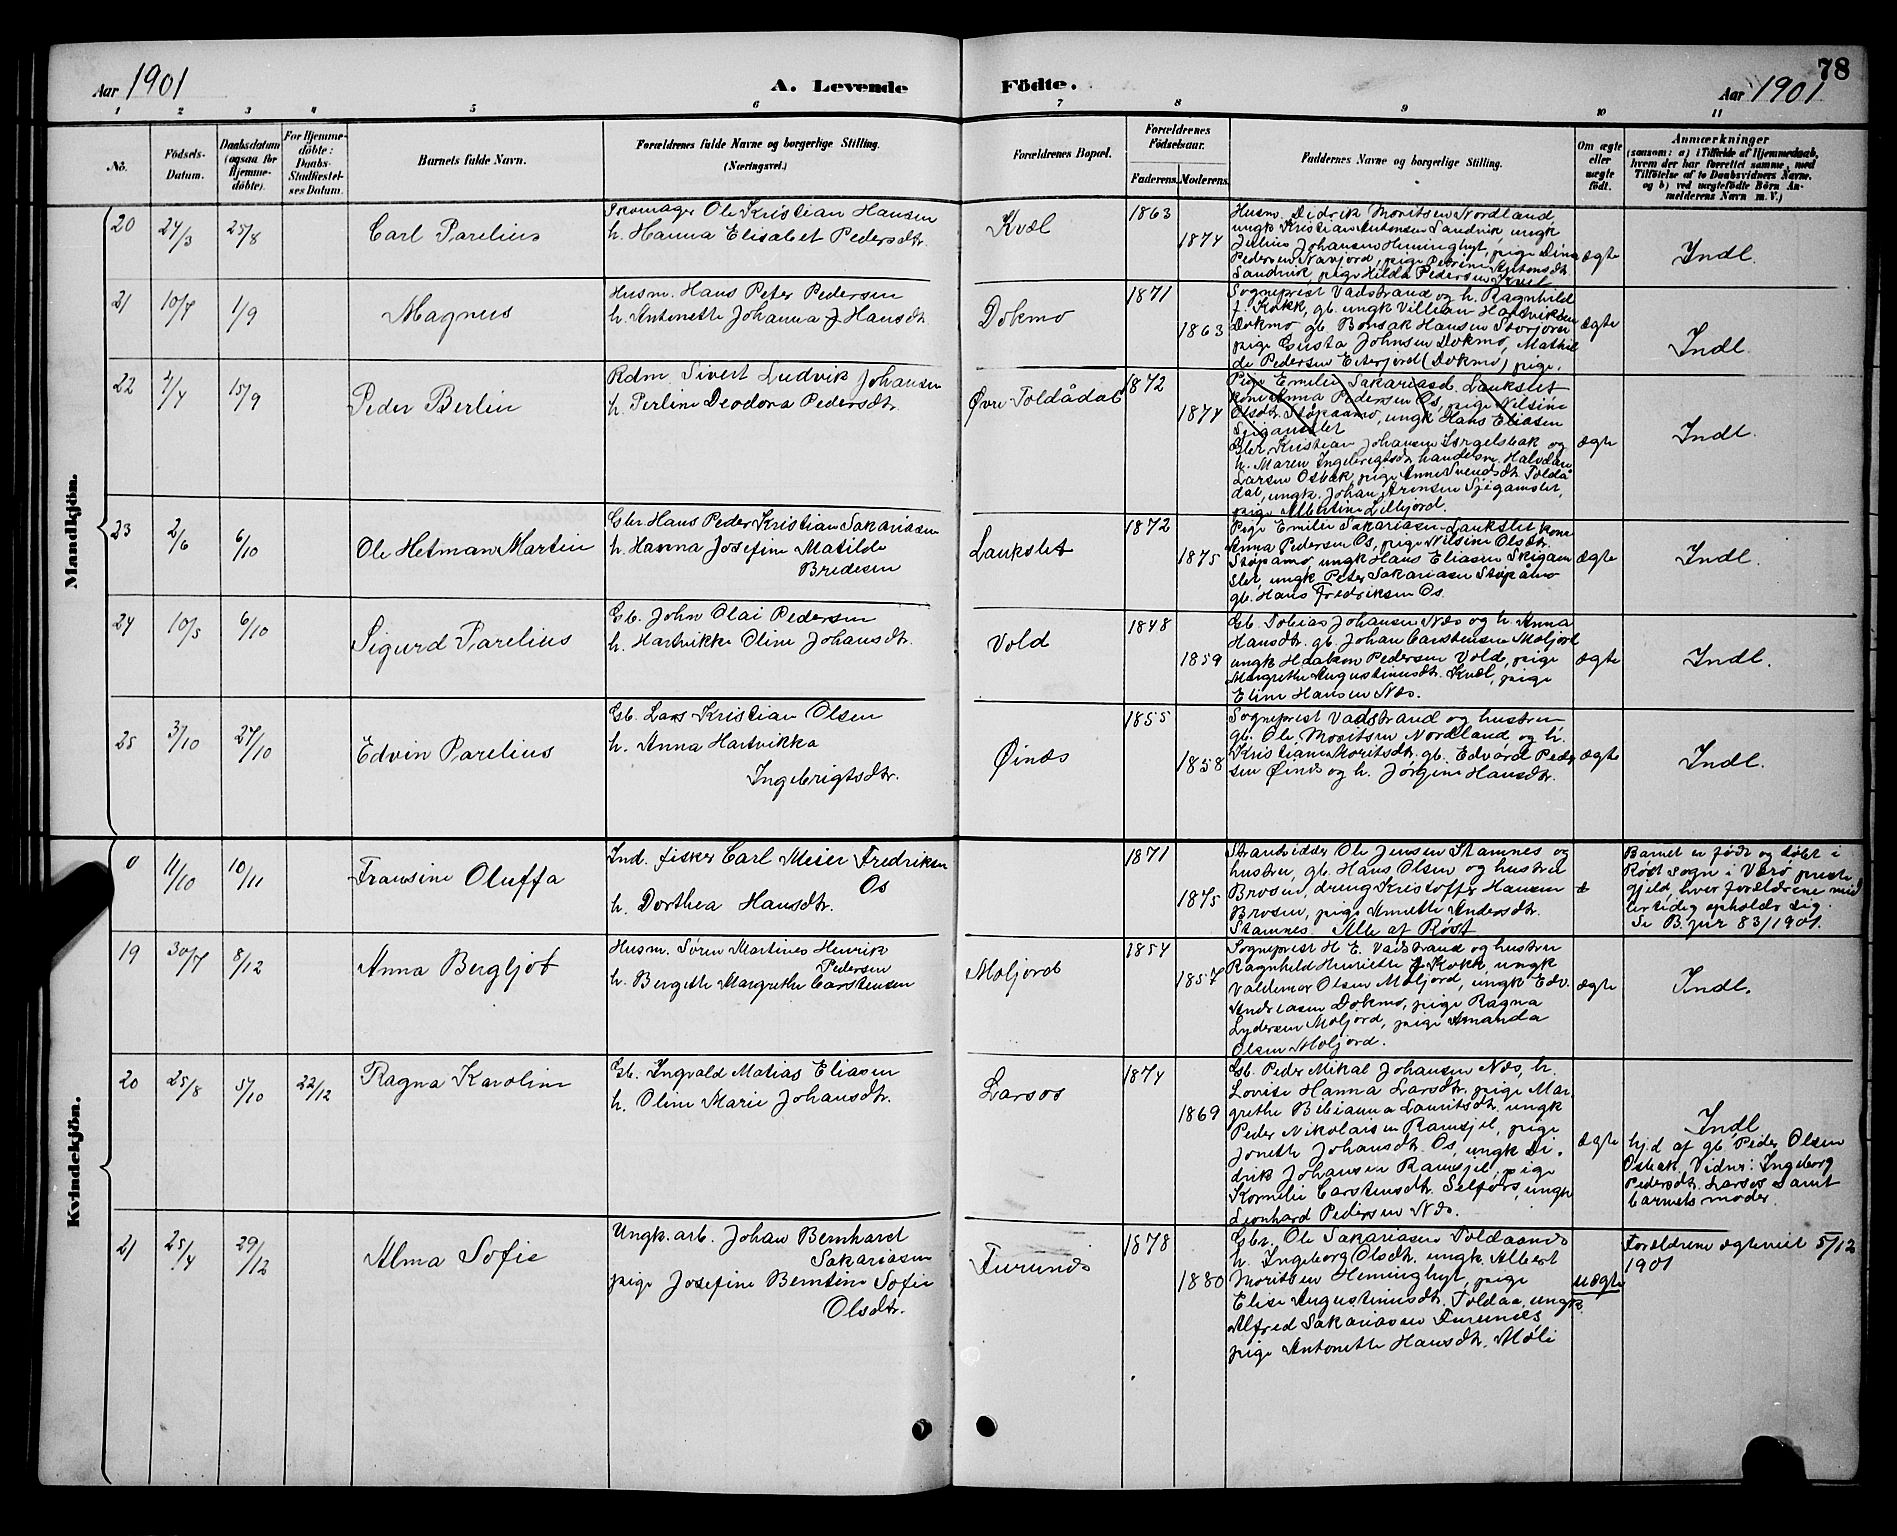 Aar 1901
A. Levende
Födte.
Aar 1901
78
1 2 3 4 5 6 7 8 9 10 11
No.
Födsels-
Datum.
Daabsdatum
(ogsaa for
Hjemme-
döbte).
For Hjemme-
döbte:
Daabs-
Stadfæstel-
ses Datum.
Barnets fulde Navn.
Forældrenes fulde Navne og borgerlige Stilling.
(Næringsvei.)
Forældrenes Bopæl.
Forældrenes
Födselsaar.
Faderens. Moderens.
Faddernes Navne og borgerlige Stilling.
Om ægte
eller
uægte
födt.
Anmærkninger
(saasom: a) i Tilfælde af Hjemmedaab,
hvem der har forrettet samme, med
Tilföielse af to Daabsvidners Navne,
og b) ved uægtefödte Börn An-
melderens Navn m. V.)
Mandkjön.
20 24/3 25/8
Carl Parelius
Skomager Ole Kristian Hansen
h. Hanna Elisabet Pedersdtr.
Kvæl
1863
1874
Husm. Didrik Moritsen Nordland
ungk Kristian Antonsen Sandvik, ungk
Julius Johansen Heminghyt, pige Dina
Pedersen Navjord, pige Petrine Antonsdtr.
Sandvik, pige Hilda Pedersen Kvæl
ægte
Indl.
21 10/7 1/9
Magnus
Husm. Hans Peter Pedersen
h. Antonette Johanna J Hansdtr.
Dokmo
1871
1863
Sogneprest Vadstrand og h. Ragnhild
f. Kokk, gb. ungk Villian Hartviksen
Dokmo gb. Bonsak Hansen Storjoren
pige Gusta Johnsen Dokmo, Mathil
de Pedersen Eiterjord (Dokmo) pige.
ægte
Indl.
22 2/7 15/9
Peder Berlin
Rdm. Sivert Ludvik Johansen
h. Perline Deodora Pedersdtr.
Øvre Toldådal
1872
1874
Pige Emilie Sakariasd. Laukslet
kone Anna Pedersen Os, pige Nilsine
Olsdtr. Støpaamo, ungk Hans Eliasen
Sjigamslet
Gbr. Kristian Johansen Jorgelsbak og
h. Maren Ingebrigtsdtr. handelsm. Halvdan
Larsen Osbak, pige Anne Svendsdtr. Toldå
dal, ungk. Johan Arensen Sjigamslet,
pige Albertine Lillejord.
ægte
Indl.
23 2/6 6/10
Ole Hetman Martin
Gbr Hans Peder Kristian Sakariasen
h. Hanna Josefine Matilde
Bredesen
Laukslet
1872
1875
Pige Emilie Sakariasen Laukslet kone
Anna Pedersen Os, pige Nilsine Olsdtr.
Støpamo, ungk Hans Eliasen Skigam
slet, ungk Peter Sakariasen Støpåmo
gb. Hans Fredriksen Os.
ægte
Indl.
24 10/5 6/10
Sigurd Parelius
Gb. John Olai Pedersen
h. Hartvikke Oline Johansdtr.
Vold
1848
1859
Gb. Tobias Johansen Næs og h. Anna
Hansdtr. gb. Johan Carstensen Moljord
ungk Haakon Pedersen Vold, pige
Margrethe Augustinusdtr. Kvæl, pige
Eline Hansen Næs.
ægte
Indl.
25 3/10 27/10
Edvin Parelius
Gb. Lars Kristian Olsen
h. Anna Hartvikka
Ingebrigtsdtr.
Øinæs
1855
1858
Sogneprest Vadstrand og hustru
gb. Ole Moritsen Nordland og h.
Kristiane Moritsdtr. gb. Edvard Peder
sen Øinæs og h. Jørgine Hansdtr.
ægte
Indl.
Kvindekjön.
0 11/10 10/11
Fransine Oluffa
Ind. fisker Carl Meier Fredriksen
Os
h. Dorthea Hansdtr.
1871
1875
Strandsidder Ole Jensen Stamnes og
hustru, gb. Hans Olsen og hustru
Brosen, dreng Kristoffer Hansen
Brosen, pige Annette Andersdtr.
Stamnes. Alle af Røst
Barnet er født og døbt i
Røst sogn i Værø preste
gjeld, hvor forældrene mid
lertidig opholdt sig.
Se B.jur 83/1901.
19 30/7 8/12
Anna Bergljot
Husm. Søren Martines Henrik
Pedersen
h. Bergette Margrethe Carstensen
Moljord
1854
1857
Sogneprest H. E. Vadstrand og hustru
Ragnhild Henriette f Kokk, ungk
Valdemar Olsen Moljord, ungk Edv.
Andreasen Dokmo, pige Ragna
Lydersen Moljord, pige Amanda
Olsen Moljord.
ægte
Indl.
20 25/8 5/10 22/12
Ragna Karoline
Gb. Ingvald Matias Eliasen
h. Oline Marie Johansdtr.
Larsos
1874
1869
Gb. Peder Mikal Johansen Næs, h.
Lovise Hanna Larsdtr. pige Mar
grethe Bibianna Lauritsdtr. ungk
Peder Nikolaisen Ramsjel, pige
Jonette Johansdtr. Os, ungk Di.
drik Johansen Ramsjel, pige
Kornelie Carstensdtr. Selfors, ungk
Leonhard Pedersen Næs.
ægte
Indl
hj.d af gb. Peder Olsen
Osbak, Vidner: Ingeborg
Pedersdtr. Larsos samt
barnets moder
21 25/4 29/12
Alma Sofie
Ungk. arb. Johan Bernhard
Sakariasen
pige Josefine Berntine Sofie
Olsdtr.
Furunæs
1878
1880
Gbr. Ole Sakariasen Toldaanæs
h. Ingeborg Olsdtr. ungk Albert
Moritsen Heminghyt, pige
Elise Augustinusdtr. Toldaa, ungk
Alfred Sakariasen Furunæs
pige Antonette Hansdtr. Moli
uægte
Forældrene ægteviet 5/12
1901